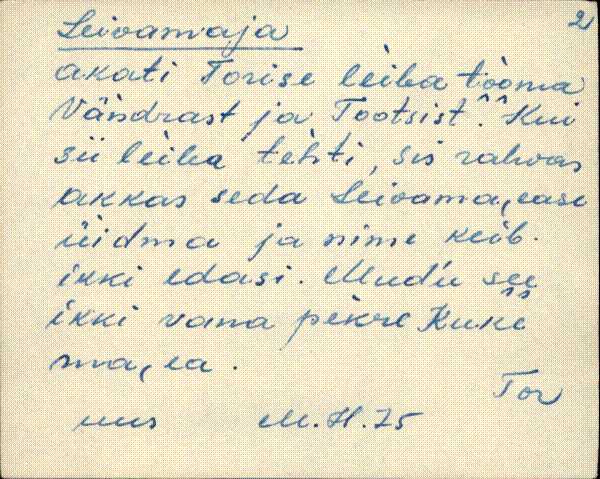 2
Leivamaja
akati Torise lèiba tòoma
Vändrast ja Tootsist. Kui
sii lèiba tehti, sis rahvas
akkas seda Leivama,ease
üidma ja nime keib
ikki edasi. Mud'u see
ikki vana pèkre Kuke
ma,ea.
Tor
uus M.H.75